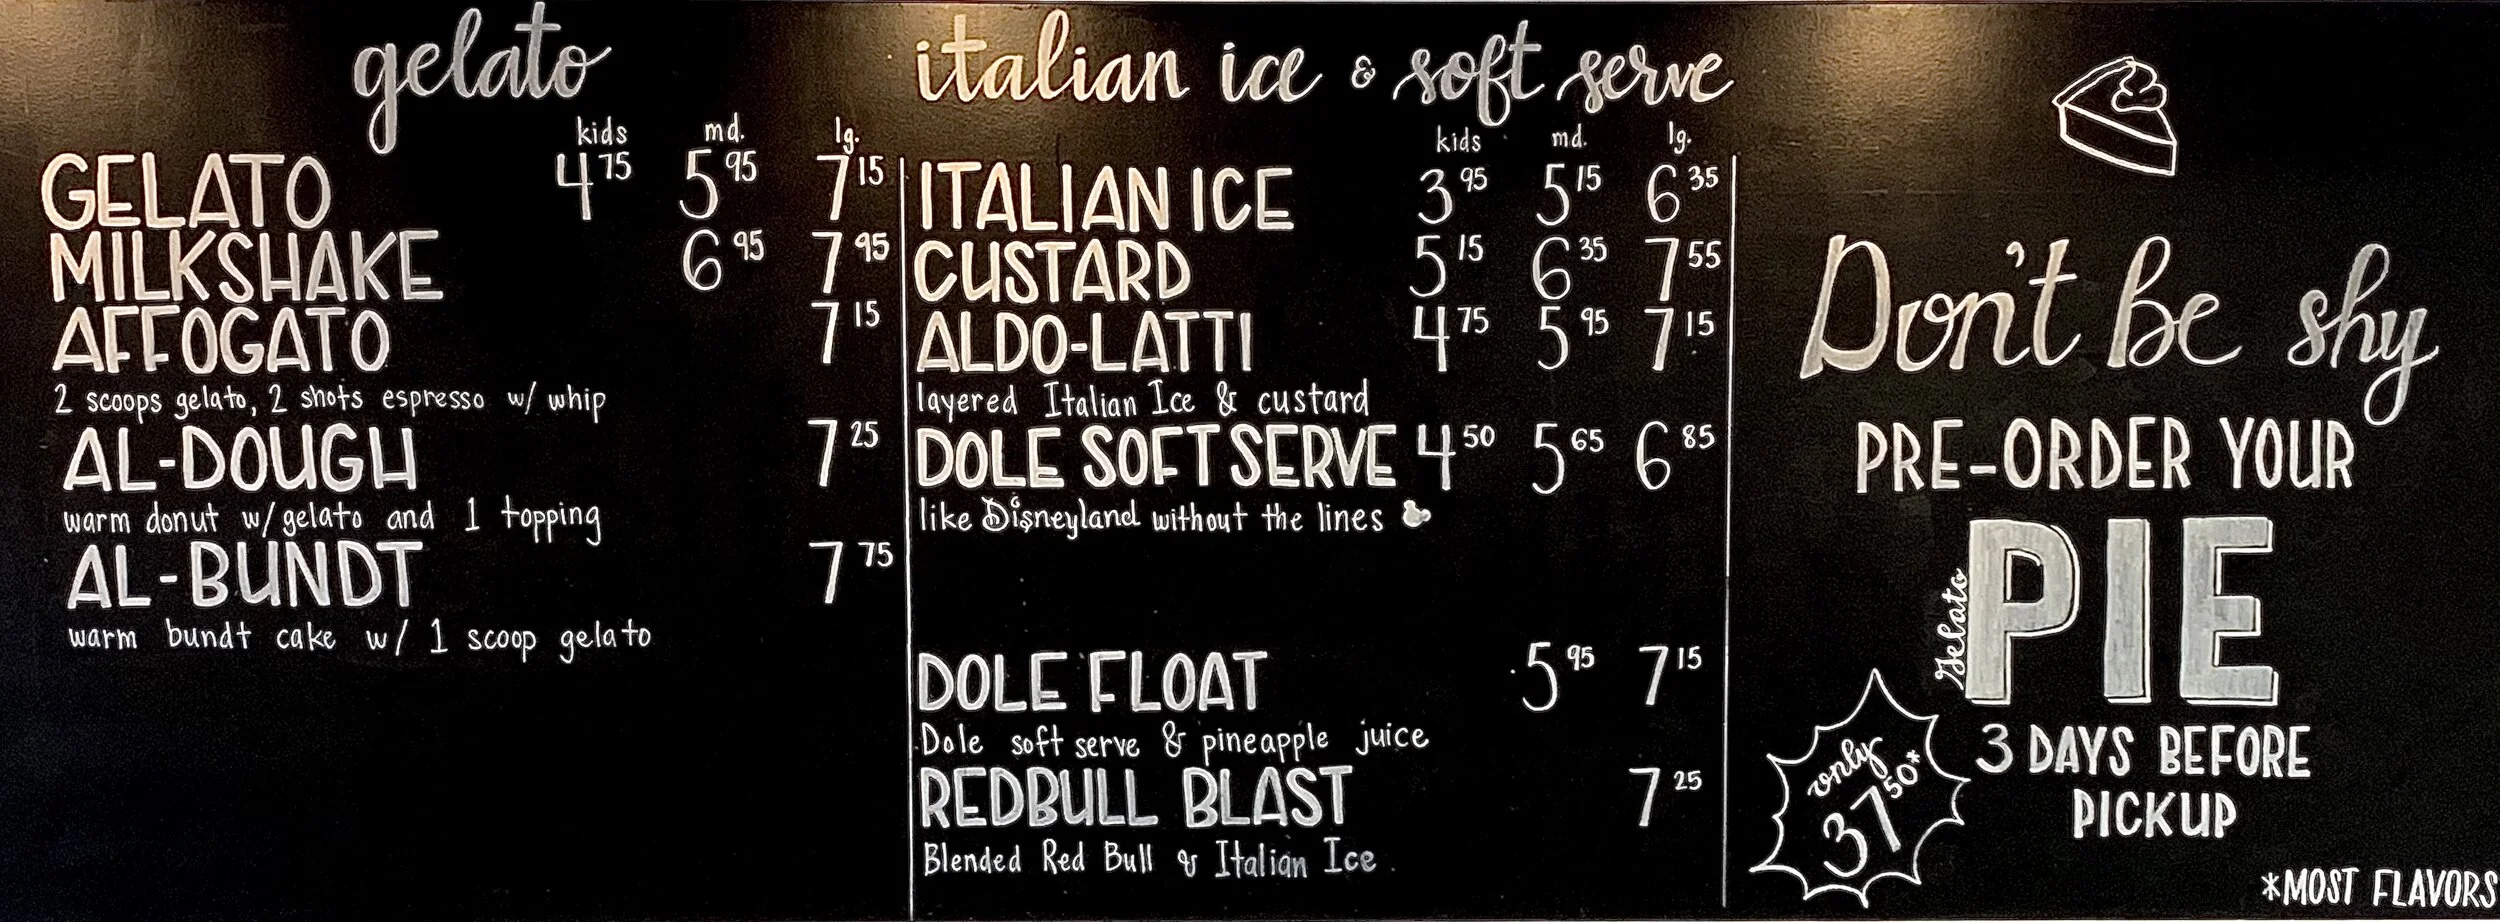 gelato
kids md. lg.
GELATO 4 75 5 95 7 15
MILKSHAKE 6 95 7 95
AFFOGATO 7 15
2 scoops gelato, 2 shots espresso w/ whip
AL-DOUGH 7 25
warm donut w/ gelato and 1 topping
AL-BUNDT 7 75
warm bundt cake w/ 1 scoop gelato
italian ice & soft serve
kids md. lg.
ITALIAN ICE 3 95 5 15 6 35
CUSTARD 5 15 6 35 7 55
ALDO-LATTI 4 75 5 95 7 15
layered Italian Ice & custard
DOLE SOFT SERVE 4 50 5 65 6 85
like Disneyland without the lines
DOLE FLOAT 5 95 7 15
Dole soft serve & pineapple juice
REDBULL BLAST 7 25
Blended Red Bull & Italian Ice
Don't be shy
PRE-ORDER YOUR
Gelato
PIE
3 DAYS BEFORE
PICKUP
only
37 50*
*MOST FLAVORS